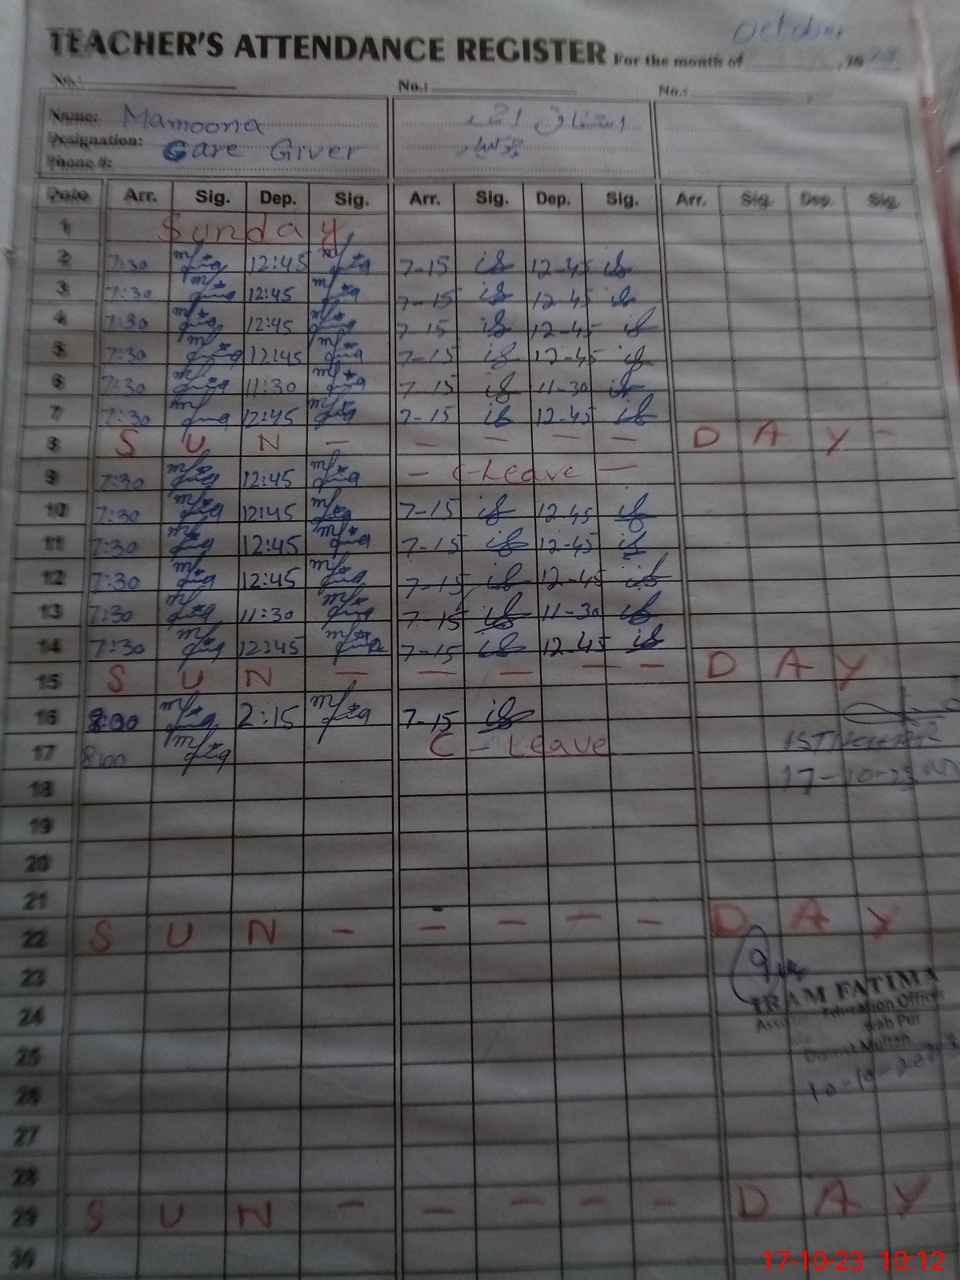 October
TEACHER'S ATTENDANCE REGISTER For the month of
No.: No.: No.:
Name: Mamoona
Designation: Care Giver
Phone #:
Date Arr. Sig. Dep. Sig. Arr. Sig. Dep. Sig. Arr. Sig. Dep. Sig.
1 Sunday
2 7:30 12:45 7-15 12-45
3 7:30 12:45 7-15 12-45
4 7:30 12:45 7-15 12-45
5 7:30 12:45 7-15 12-45
6 7:30 11:30 7-15 11-30
7 7:30 12:45 7-15 12-45
8 S U N - - - - - D A Y -
9 7:30 12:45 - C-Leave -
10 7:30 12:45 7-15 12-45
11 7:30 12:45 7-15 12-45
12 7:30 12:45 7-15 12-45
13 7:30 11:30 7-15 11-30
14 7:30 12:45 7-15 12-45
15 S U N - - - - - D A Y
16 8:00 2:15 7-15
17 8:00 C - Leave
17-10-23
18
19
20
21
22 S U N - - - - - D A Y
23
IRAM FATIMA
24 Education Officer
25
10-10-2023
26
27
28
29 S U N - - - - - D A Y
30
17-10-23 10:12